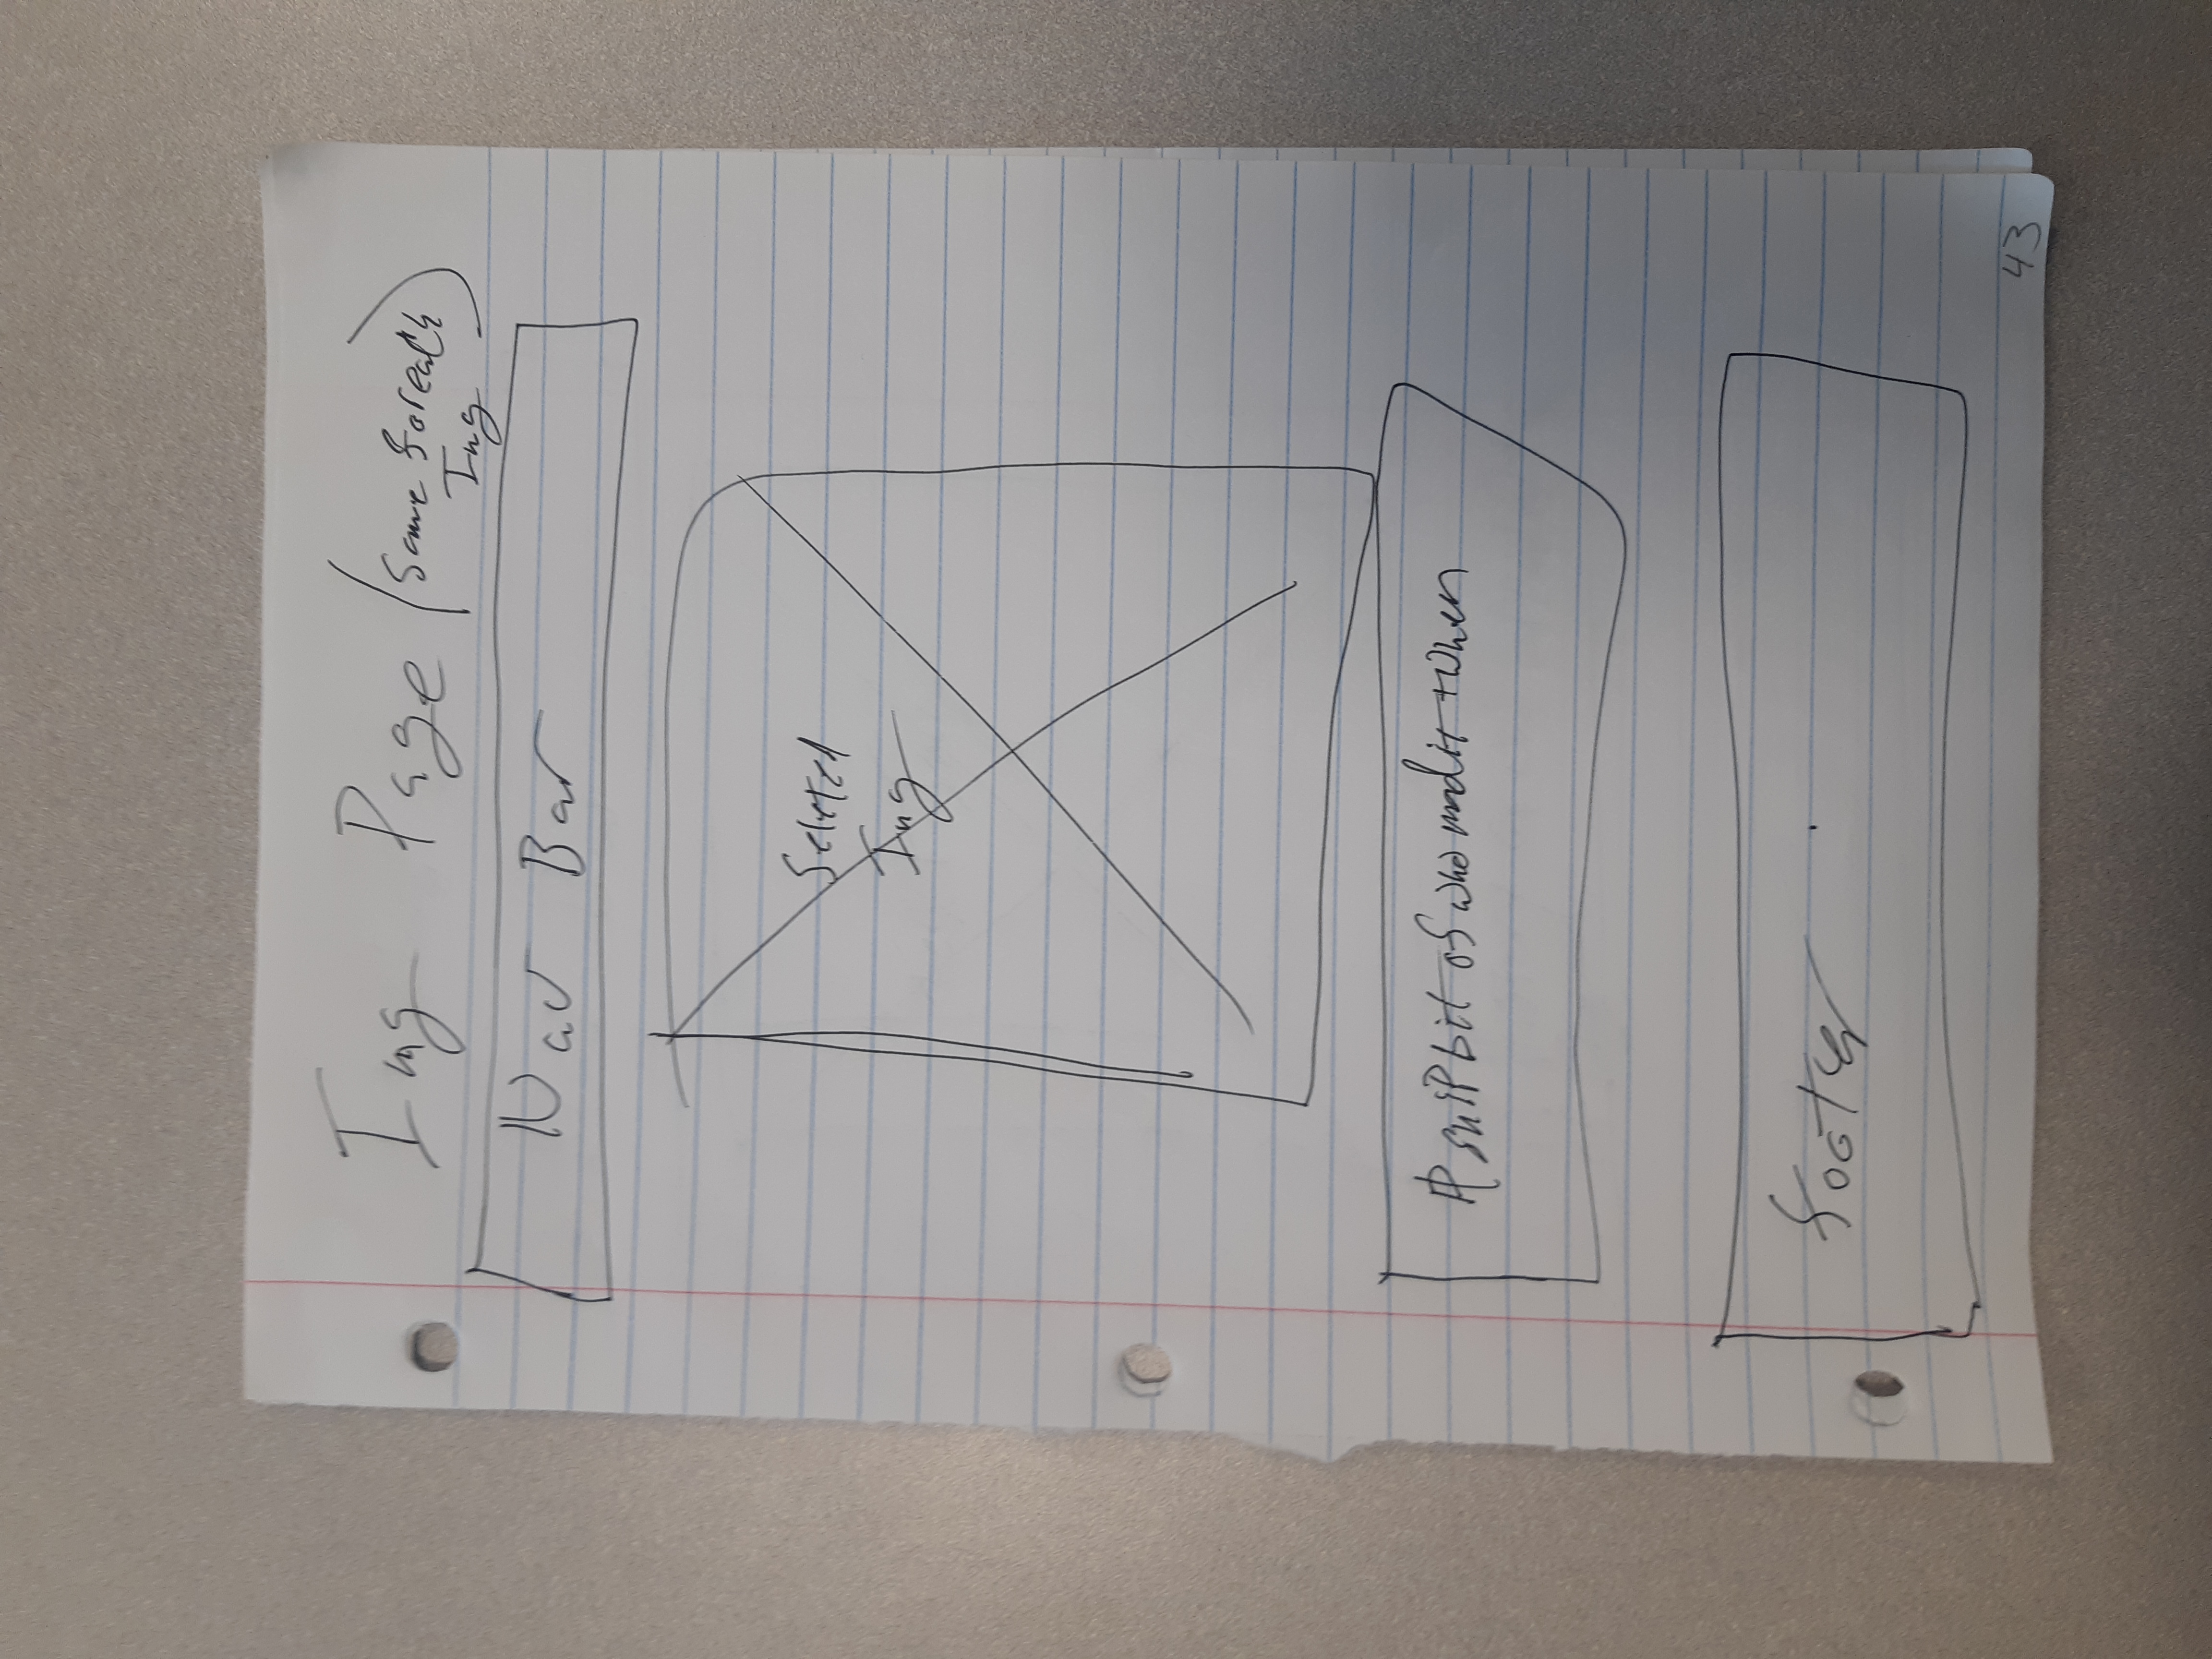 Img Page (Same foreach
Img)
Nav Bar
Seleted
Img
A snipbit of who mad it + when
footer
43